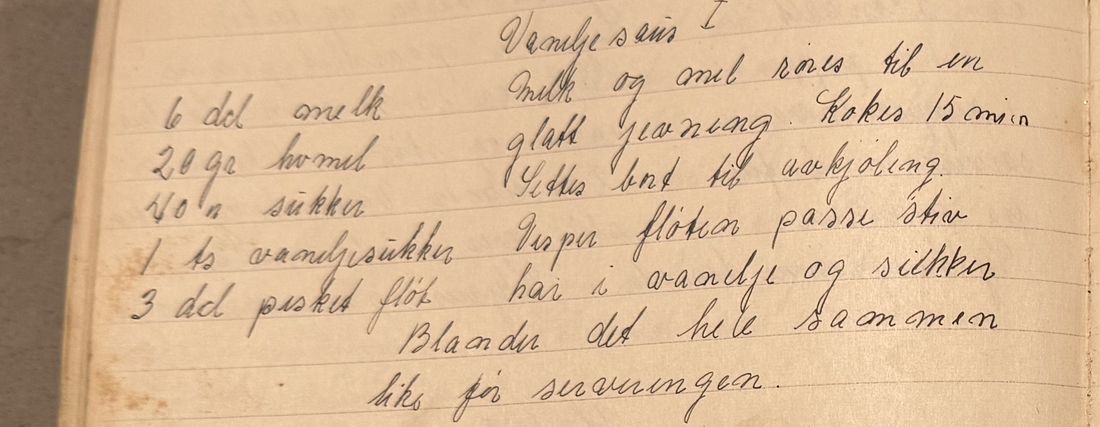 Vanelje saus I
6 dcl melk
20 gr hvmel
40 " sukker
1 ts vaneljesukker
3 dcl pisket fløt
Melk og mel røres til en
glatt jevning. Kokes 15 min
Settes bort til avkjøling.
Visper fløten passe stiv
har i vanelje og sukker
Blander det hele sammen
like før serveringen.